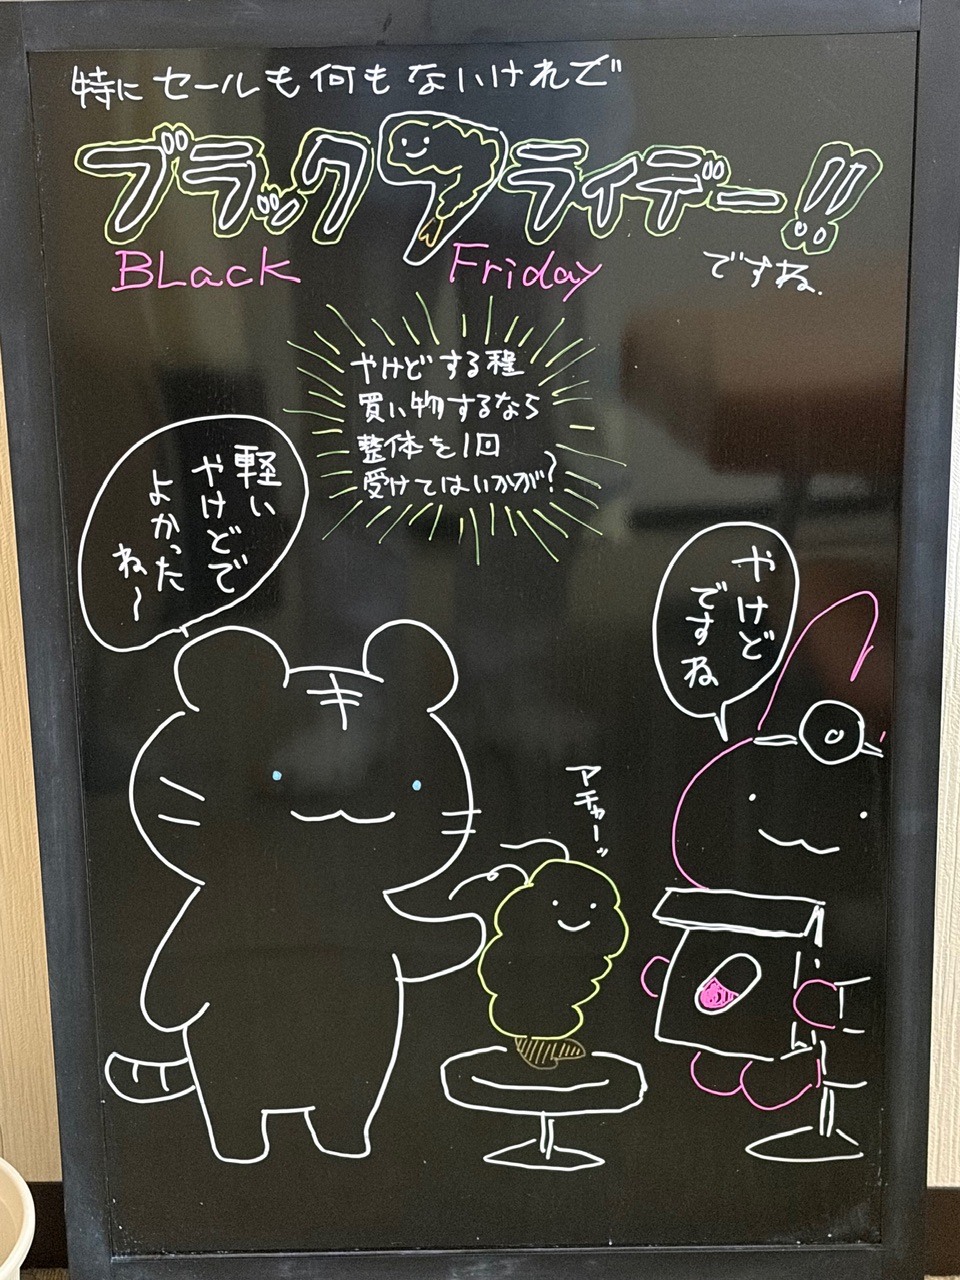 特にセールも何もないけれで
ブラックフライデー!!
BLack Friday ですね.
やけどする程
買い物するなら
整体を1回
受けてはいかが?
軽い
やけどで
よかった
ね~
やけど
ですね
アチャーッ